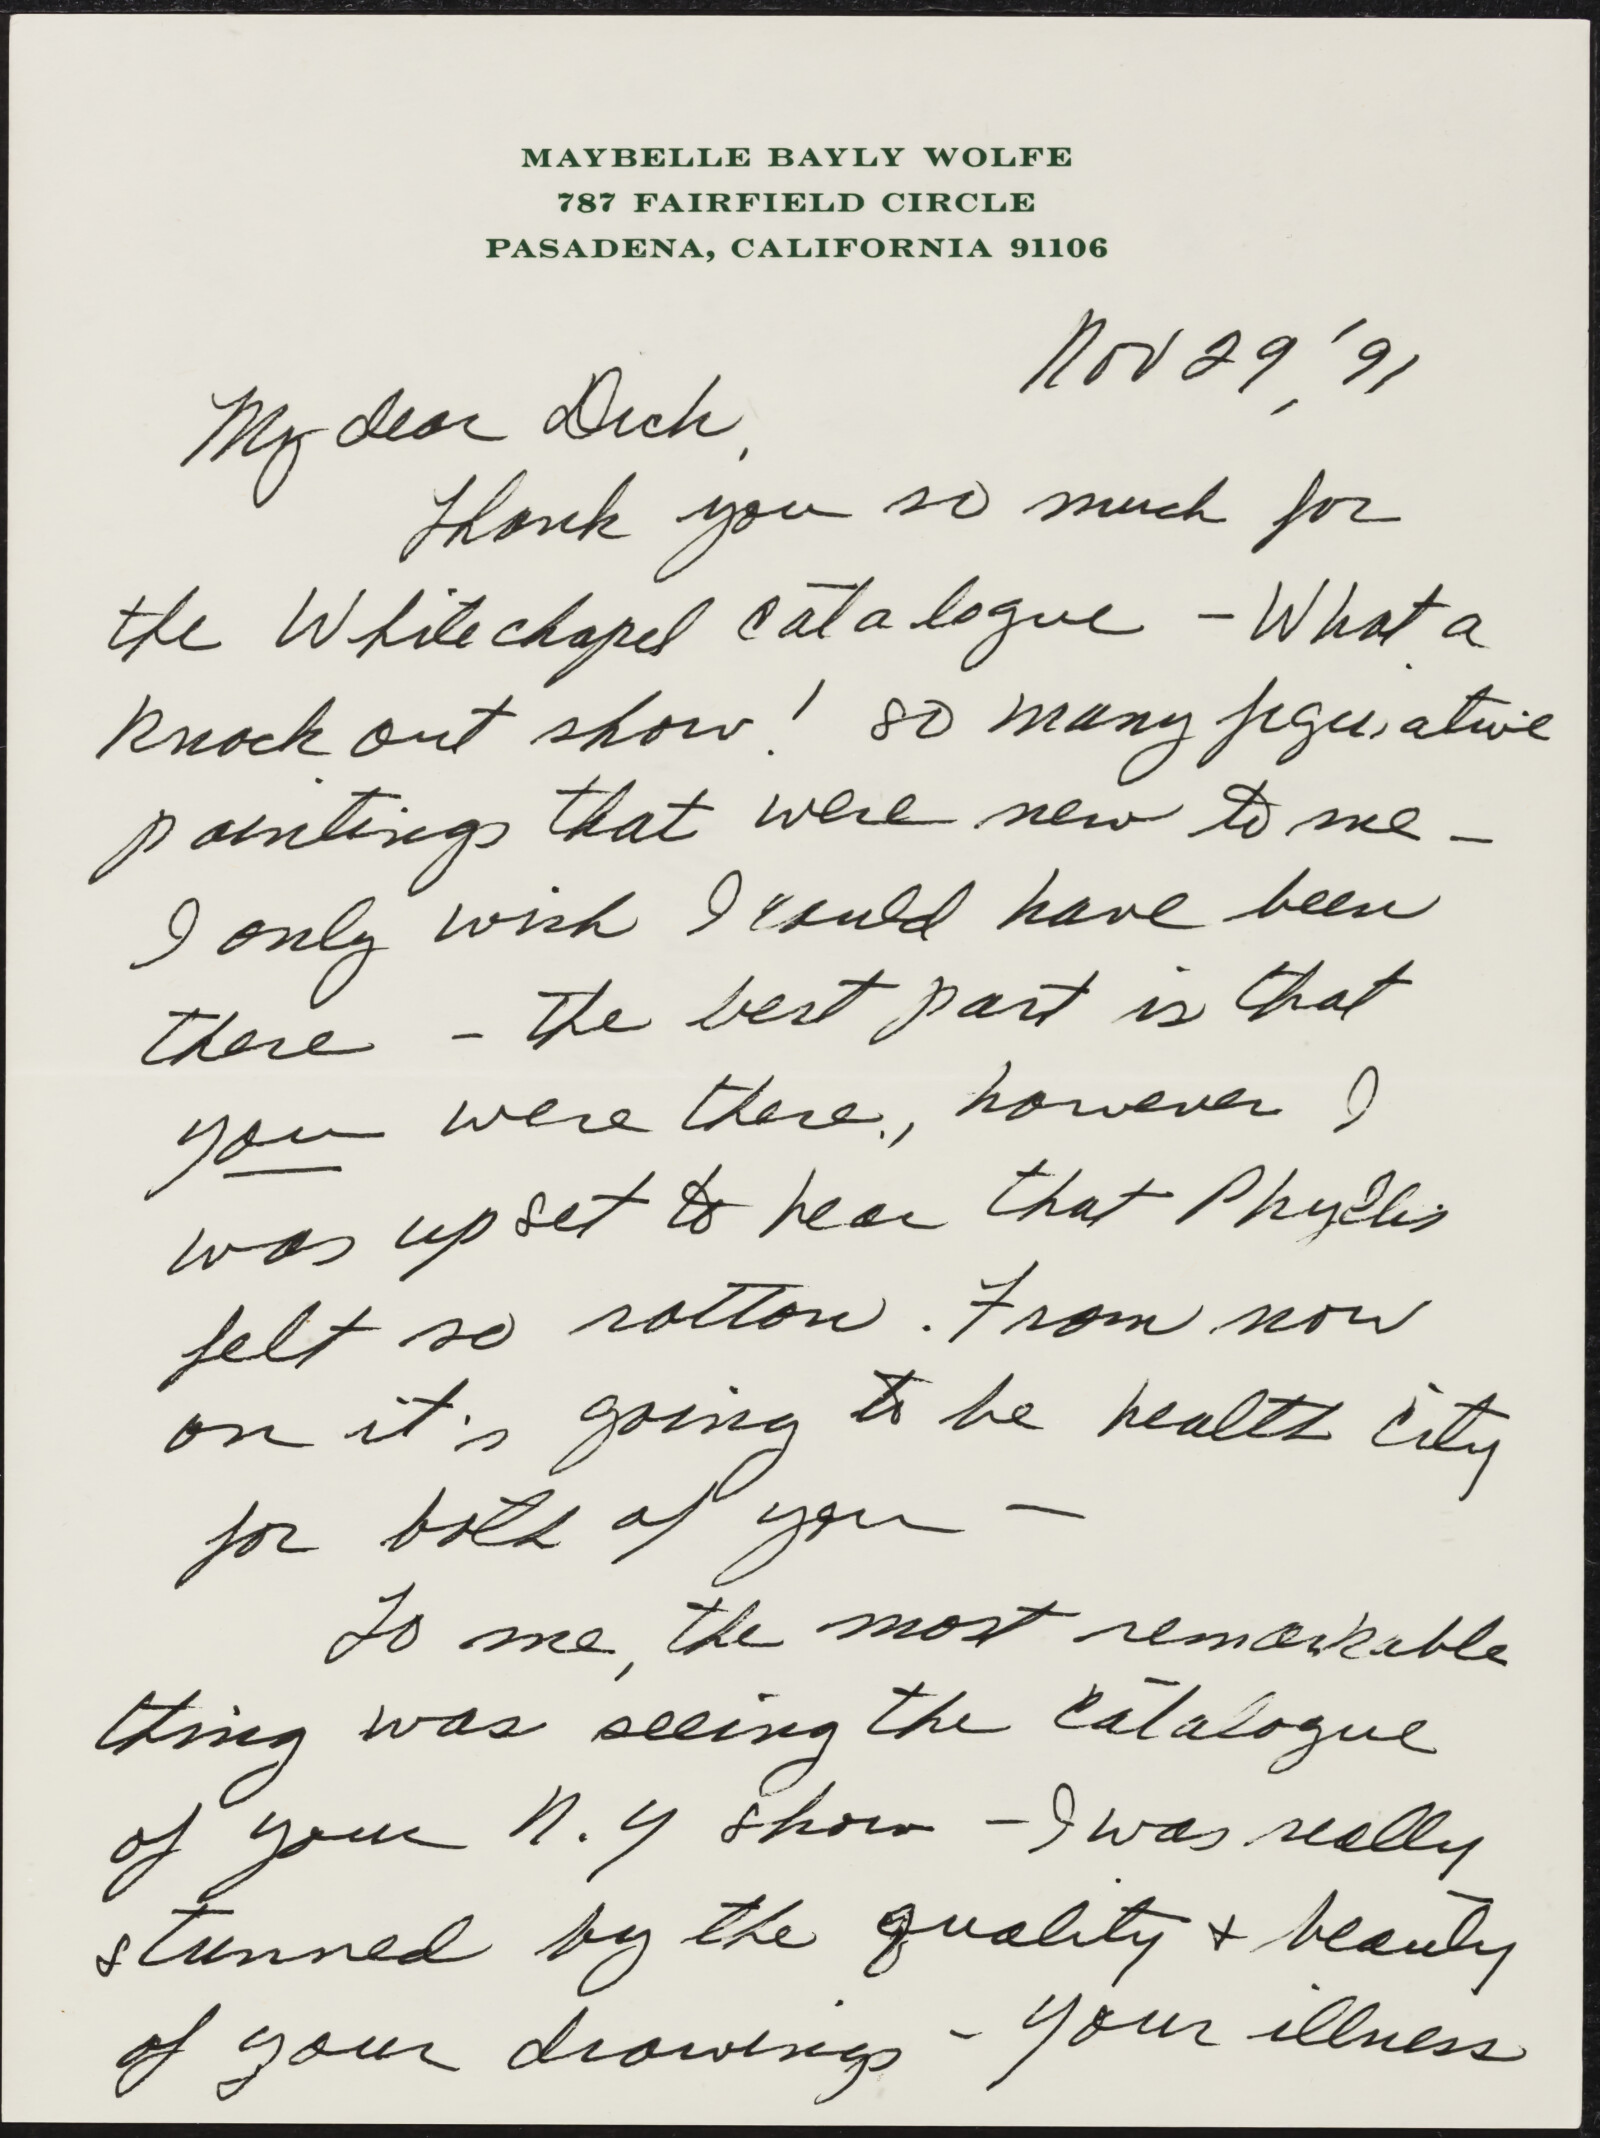 MAYBELLE BAYLY WOLFE
787 FAIRFIELD CIRCLE
PASADENA, CALIFORNIA 91106
Nov 29, '91
My dear Dick,
Thank you so much for
the Whitechapel catalogue – What a
knock out show! so many figurative
paintings that were new to me –
I only wish I could have been
there – the best part is that
you were there., however I
was upset to hear that Phyllis
felt so rotton. From now
on it's going to be health city
for both of you –
To me, the most remarkable
thing was seeing the catalogue
of your N.Y show – I was really
stunned by the quality + beauty
of your drawings – your illness